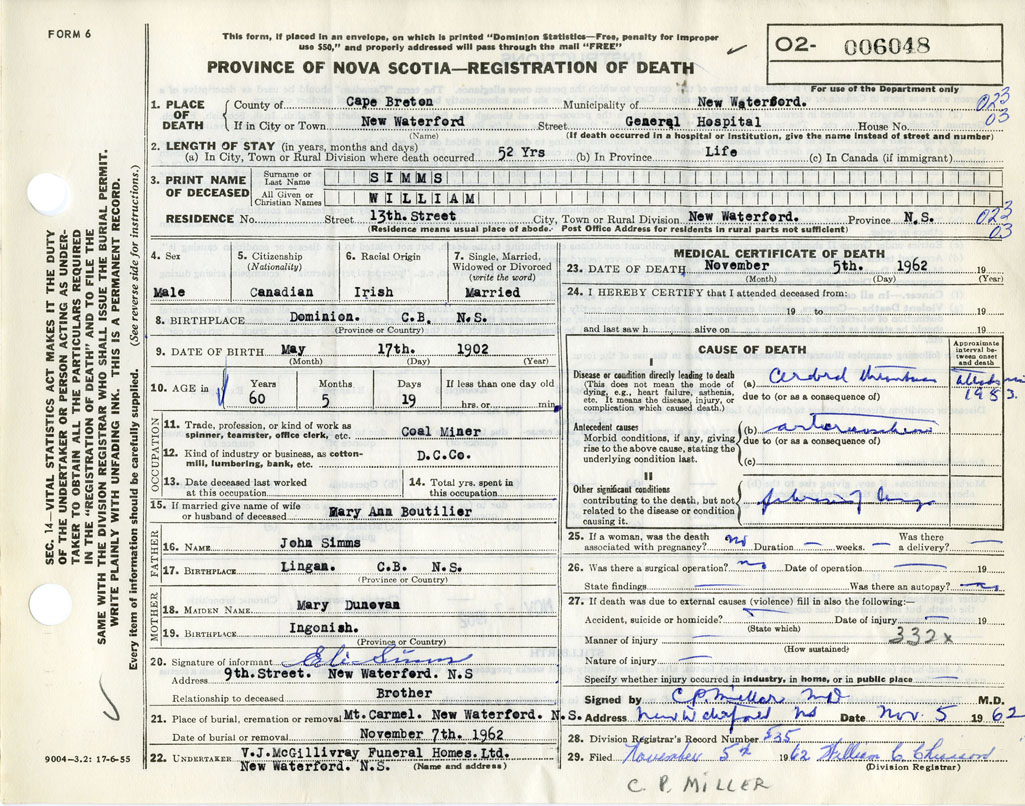 FORM 6
This form, if placed in an envelope, on which is printed "Dominion Statistics—Free, penalty for improper
use $50," and properly addressed will pass through the mail "FREE"
PROVINCE OF NOVA SCOTIA—REGISTRATION OF DEATH
02- 006048
For use of the Department only
SEC. 14—VITAL STATISTICS ACT MAKES IT THE DUTY
OF THE UNDERTAKER OR PERSON ACTING AS UNDER-
TAKER TO OBTAIN ALL THE PARTICULARS REQUIRED
IN THE "REGISTRATION OF DEATH" AND TO FILE THE
SAME WITH THE DIVISION REGISTRAR WHO SHALL ISSUE THE BURIAL PERMIT.
WRITE PLAINLY WITH UNFADING INK. THIS IS A PERMANENT RECORD.
Every item of information should be carefully supplied. (See reverse side for instructions.)
1. PLACE OF DEATH
County of Cape Breton Municipality of New Waterford. 023
If in City or Town New Waterford Street General Hospital House No. 03
(Name) (If death occurred in a hospital or institution, give the name instead of street and number)
2. LENGTH OF STAY (in years, months and days)
(a) In City, Town or Rural Division where death occurred 52 Yrs (b) In Province Life (c) In Canada (if immigrant)
3. PRINT NAME OF DECEASED
Surname or Last Name SIMMS
All Given or Christian Names WILLIAM
RESIDENCE No. Street 13th. Street City, Town or Rural Division New Waterford. Province N.S. 023
(Residence means usual place of abode. Post Office Address for residents in rural parts not sufficient) 03
4. Sex 5. Citizenship (Nationality) 6. Racial Origin 7. Single, Married, Widowed or Divorced (write the word)
Male Canadian Irish Married
8. BIRTHPLACE Dominion. C.B. N.S.
(Province or Country)
9. DATE OF BIRTH May 17th. 1902
(Month) (Day) (Year)
10. AGE in Years Months Days If less than one day old
60 5 19 hrs. or min.
OCCUPATION
11. Trade, profession, or kind of work as
spinner, teamster, office clerk, etc. Coal Miner
12. Kind of industry or business, as cotton-
mill, lumbering, bank, etc. D.C.Co.
13. Date deceased last worked at this occupation 14. Total yrs. spent in this occupation
15. If married give name of wife
or husband of deceased Mary Ann Boutilier
FATHER
16. NAME John Simms
17. BIRTHPLACE Lingan. C.B. N.S.
(Province or Country)
MOTHER
18. MAIDEN NAME Mary Dunovan
19. BIRTHPLACE Ingonish.
(Province or Country)
20. Signature of informant Eli Simms
Address 9th. Street. New Waterford. N.S
Relationship to deceased Brother
21. Place of burial, cremation or removal Mt. Carmel. New Waterford. N.S.
Date of burial or removal November 7th. 1962
22. UNDERTAKER V.J.McGillivray Funeral Homes. Ltd.
New Waterford. N.S. (Name and address)
9004—3.2: 17-6-55
MEDICAL CERTIFICATE OF DEATH
23. DATE OF DEATH November 5th. 1962 19
(Month) (Day) (Year)
24. I HEREBY CERTIFY that I attended deceased from:
19 to 19
and last saw h alive on 19
CAUSE OF DEATH
Approximate interval between onset and death
I
Disease or condition directly leading to death
(This does not mean the mode of
dying, e.g., heart failure, asthenia,
etc. It means the disease, injury, or
complication which caused death.)
(a) Cerebral thrombosis
due to (or as a consequence of)
Antecedent causes
Morbid conditions, if any, giving
rise to the above cause, stating the
underlying condition last.
(b)
due to (or as a consequence of)
(c)
II
Other significant conditions
contributing to the death, but not
related to the disease or condition
causing it.
25. If a woman, was the death
associated with pregnancy? no Duration — weeks. — Was there a delivery? —
26. Was there a surgical operation? no Date of operation — 19
State findings — Was there an autopsy? no
27. If death was due to external causes (violence) fill in also the following:—
Accident, suicide or homicide? — Date of injury — 19
(State which)
Manner of injury — 332x
(How sustained)
Nature of injury —
Specify whether injury occurred in industry, in home, or in public place —
Signed by C.P. Miller MD M.D.
Address New Waterford NS Date Nov. 5 1962
28. Division Registrar's Record Number 535
29. Filed November 5th 1962 William C. Chiasson
(Division Registrar)
C. P. MILLER